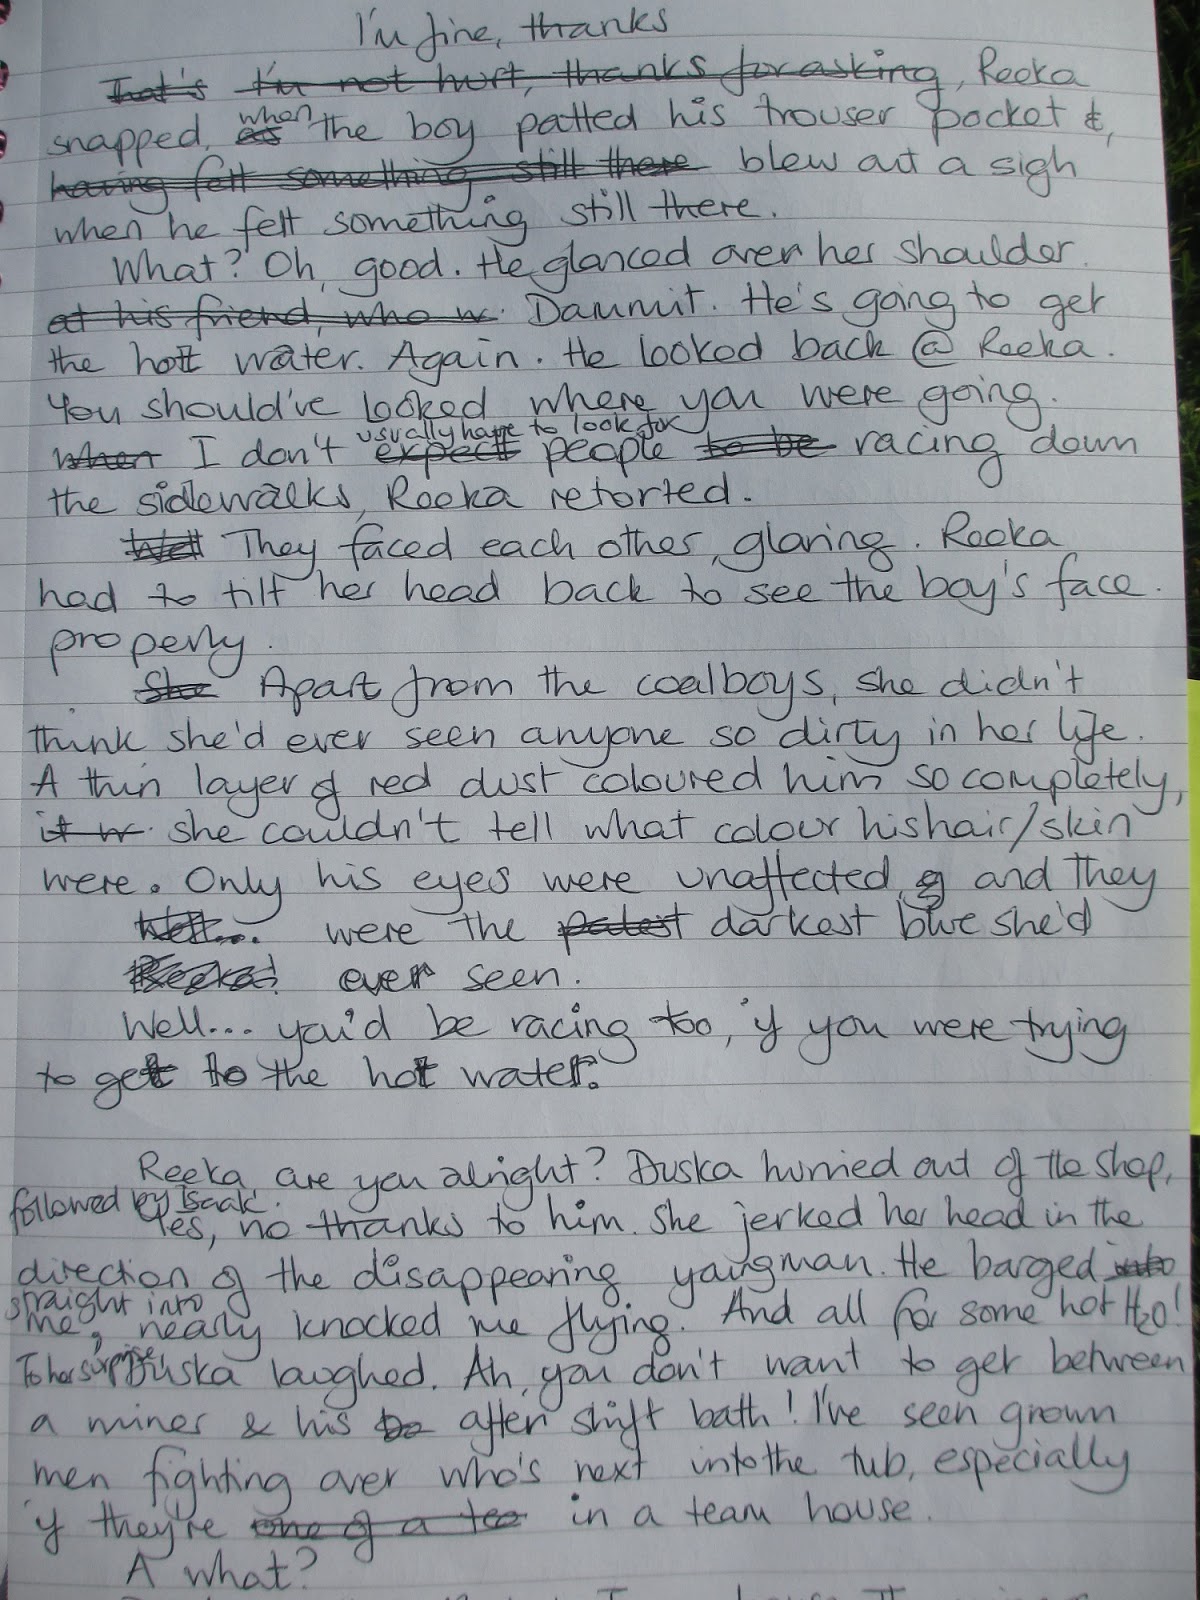 I'm fine, thanks
That's I'm not hurt, thanks for asking, Reeka
snapped, as when the boy patted his trouser pocket &,
having felt something still there blew out a sigh
when he felt something still there.
What? Oh, good. He glanced over her shoulder.
at his friend, who w. Dammit. He's going to get
the hot water. Again. He looked back @ Reeka.
You should've looked where you were going.
usually have to look for
When I don't expect people to be racing down
the sidewalks, Reeka retorted.
Well They faced each other, glaring. Reeka
had to tilt her head back to see the boy's face
properly.
She Apart from the coalboys, she didn't
think she'd ever seen anyone so dirty in her life.
A thin layer of red dust coloured him so completely,
it w. she couldn't tell what colour his hair/skin
were. Only his eyes were unaffected, and they
Well... were the palest darkest blue she'd
Reeka ever seen.
Well... you'd be racing too, if you were trying
to get to the hot water.
Reeka, are you alright? Duska hurried out of the shop,
followed by Isaak.
Yes, no thanks to him. She jerked her head in the
direction of the disappearing youngman. He barged into
straight into
me, nearly knocked me flying. And all for some hot H2O!
To her surprise Duska laughed. Ah, you don't want to get between
a miner & his ba after shift bath! I've seen grown
men fighting over who's next into the tub, especially
if they're one of a tea in a team house.
A what?